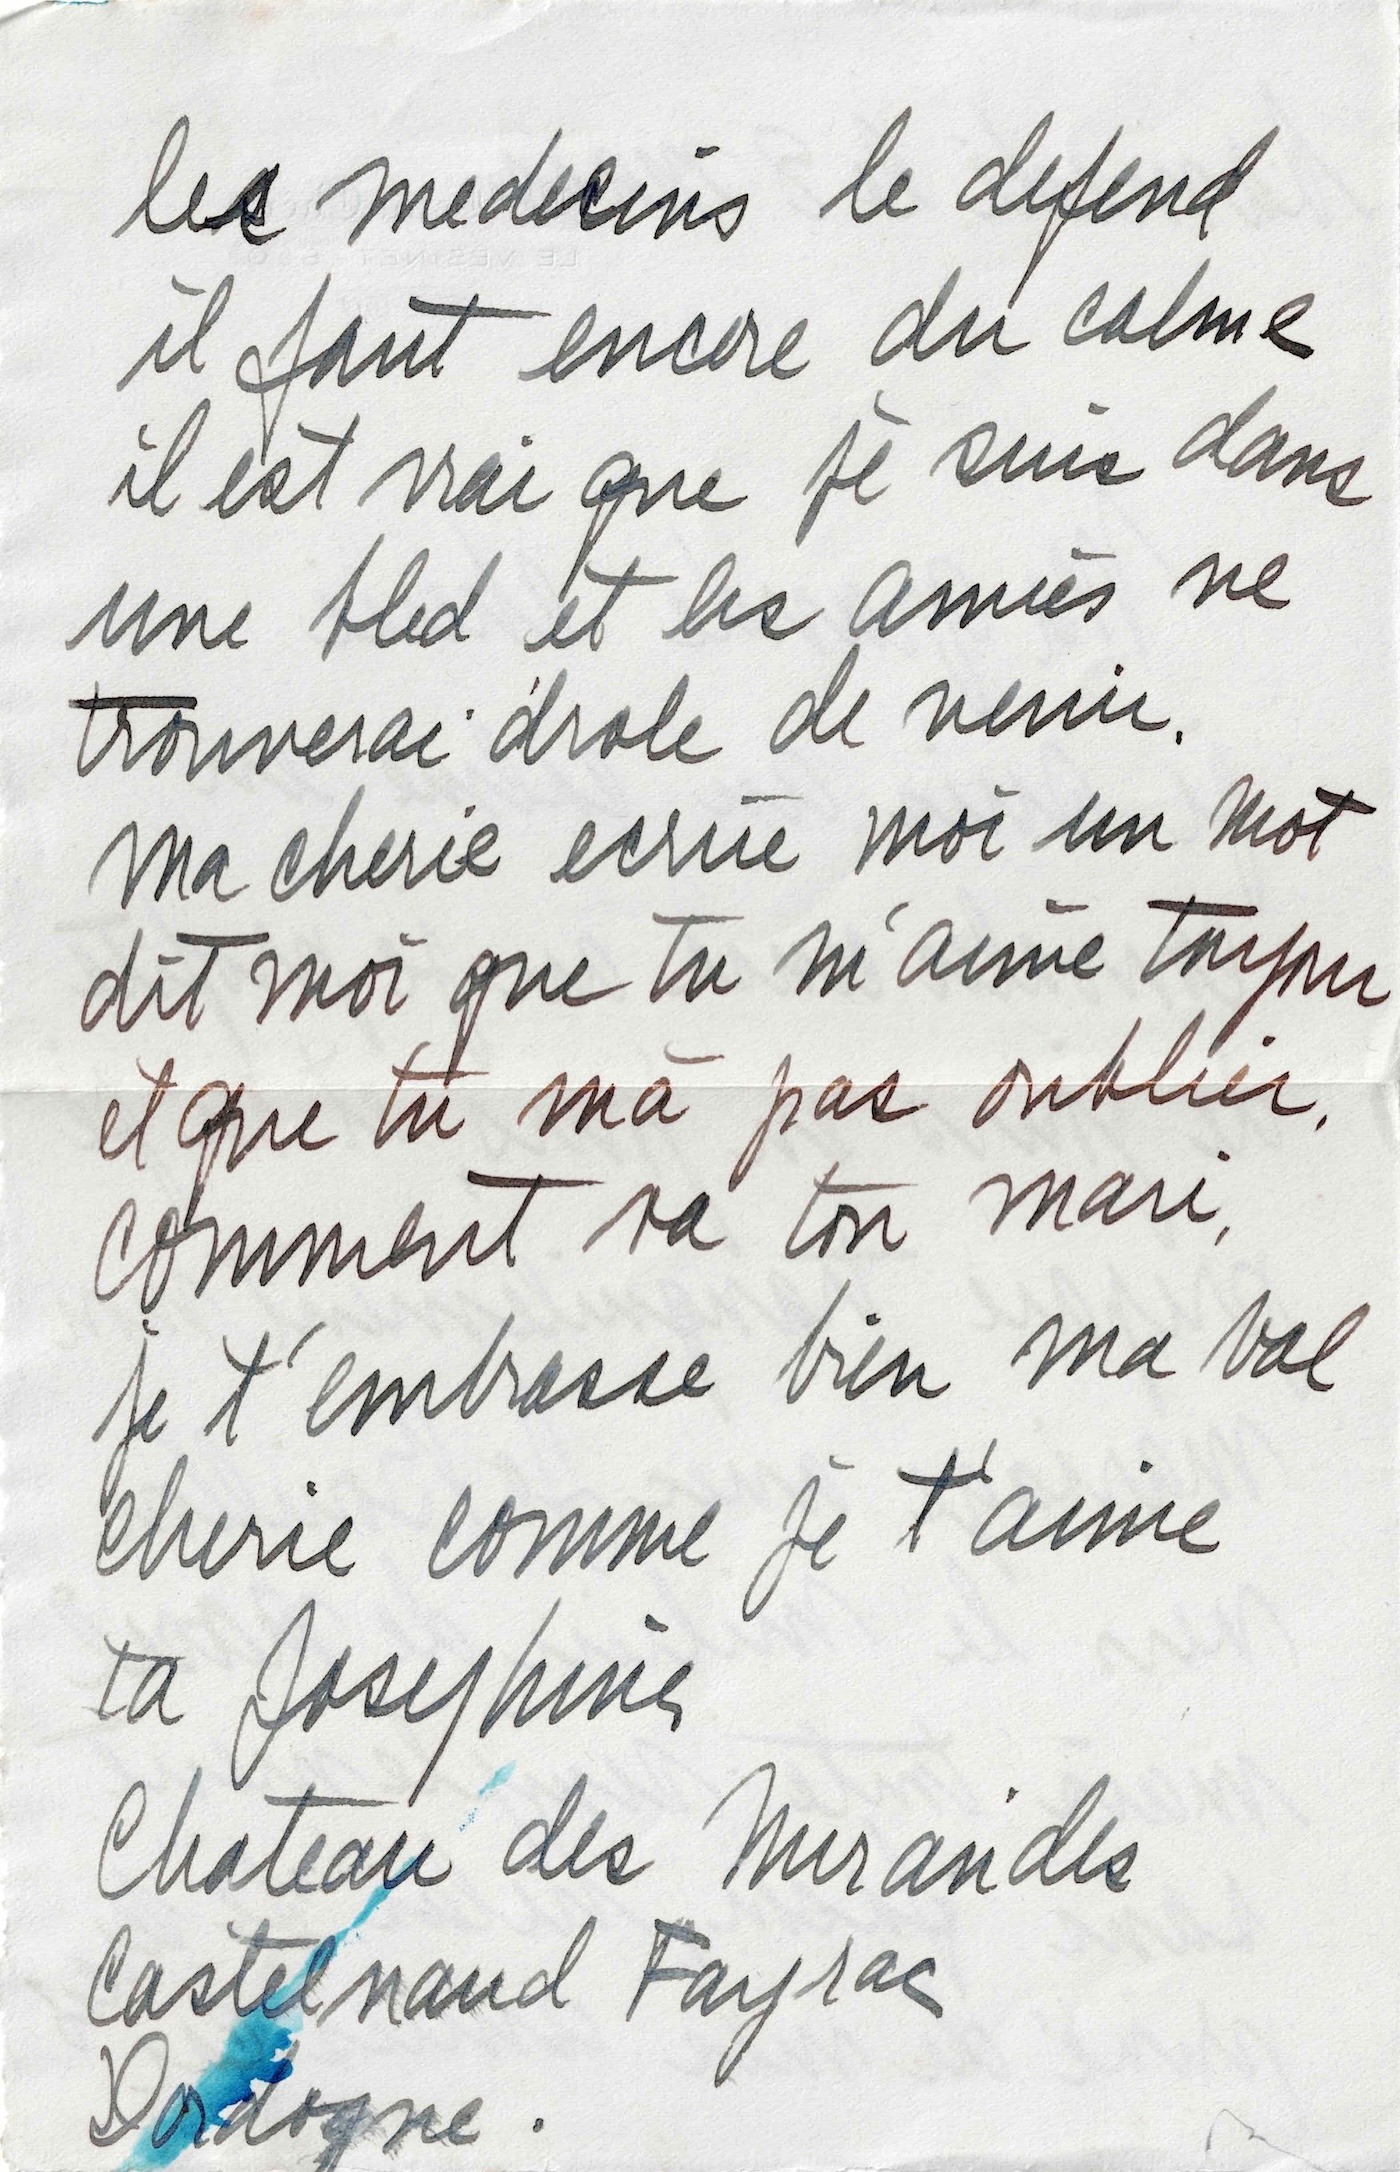 les medecins le defend
il faut encore du calme
il est vrai que je suis dans
une bled et les amies ne
trouverai drole de venir.
ma cherie ecrie moi un mot
dit moi que tu m'aime toujour
et que tu ma pas oublier.
comment va ton mari,
je t'embrasse bien ma Val
cherie comme je t'aime
ta Josephine
Chateau des Mirandes
Castelnaud Fayrac
Dordogne.